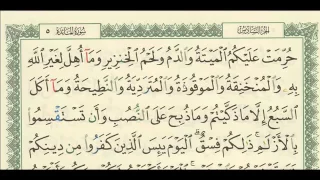 الجزء السادس سورة المائدة ٥
حُرِّمَتْ عَلَيْكُمُ ٱلْمَيْتَةُ وَٱلدَّمُ وَلَحْمُ ٱلْخِنزِيرِ وَمَآ أُهِلَّ لِغَيْرِ ٱللَّهِ
بِهِۦ وَٱلْمُنْخَنِقَةُ وَٱلْمَوْقُوذَةُ وَٱلْمُتَرَدِّيَةُ وَٱلنَّطِيحَةُ وَمَآ أَكَلَ
ٱلسَّبُعُ إِلَّا مَا ذَكَّيْتُمْ وَمَا ذُبِحَ عَلَى ٱلنُّصُبِ وَأَن تَسْتَقْسِمُوا۟
بِٱلْأَزْلَٰمِ ۚ ذَٰلِكُمْ فِسْقٌ ۗ ٱلْيَوْمَ يَئِسَ ٱلَّذِينَ كَفَرُوا۟ مِن دِينِكُمْ